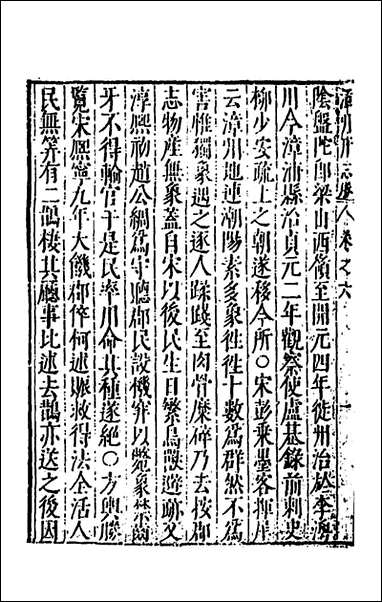 卷之六
陰盤陀郎梁山西嶺至開元四年徙州治於李澳
川今漳浦縣治貞元二年觀察使盧惎錄前刺史
柳少安疏上之朝遂移今所○宋彭乘墨客揮犀
云漳州地連潮陽素多象徃徃十數為群然不為
害惟獨象遇之逐人蹂踐至肉骨糜碎乃去按郡
志物産無象蓋自宋以後民生日繁鳥獸避跡又
淳熙初趙公綢為守聽郡民設機穽以斃象禁
牙不得輸官于是民率用命其種遂絕○方輿勝
覽宋熙寧九年大饑郡倅何述賑救得法全活人
民無筭有二鵲棲其廳事比述去鵲亦送之後因